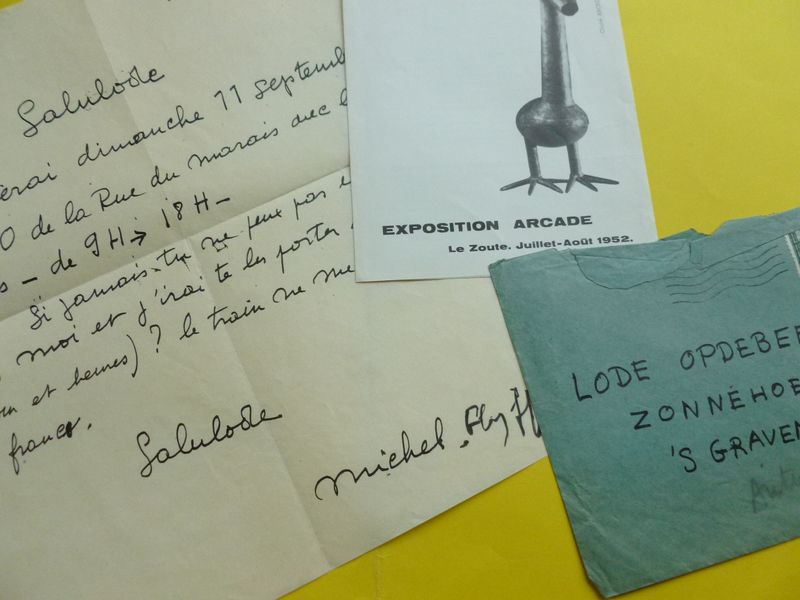 Salulode
erai dimanche 11 septemb
0 de la Rue du marais avec l
s - de 9H → 18H -
Si jamais tu ne peux pas e
moi et j'irai te les porter
et heures) ? le train ne me
francs.
Salulode
michel.
EXPOSITION ARCADE
Le Zoute. Juillet-Août 1952.
LODE OPDEBEE
ZONNEHOE
'S GRAVEN